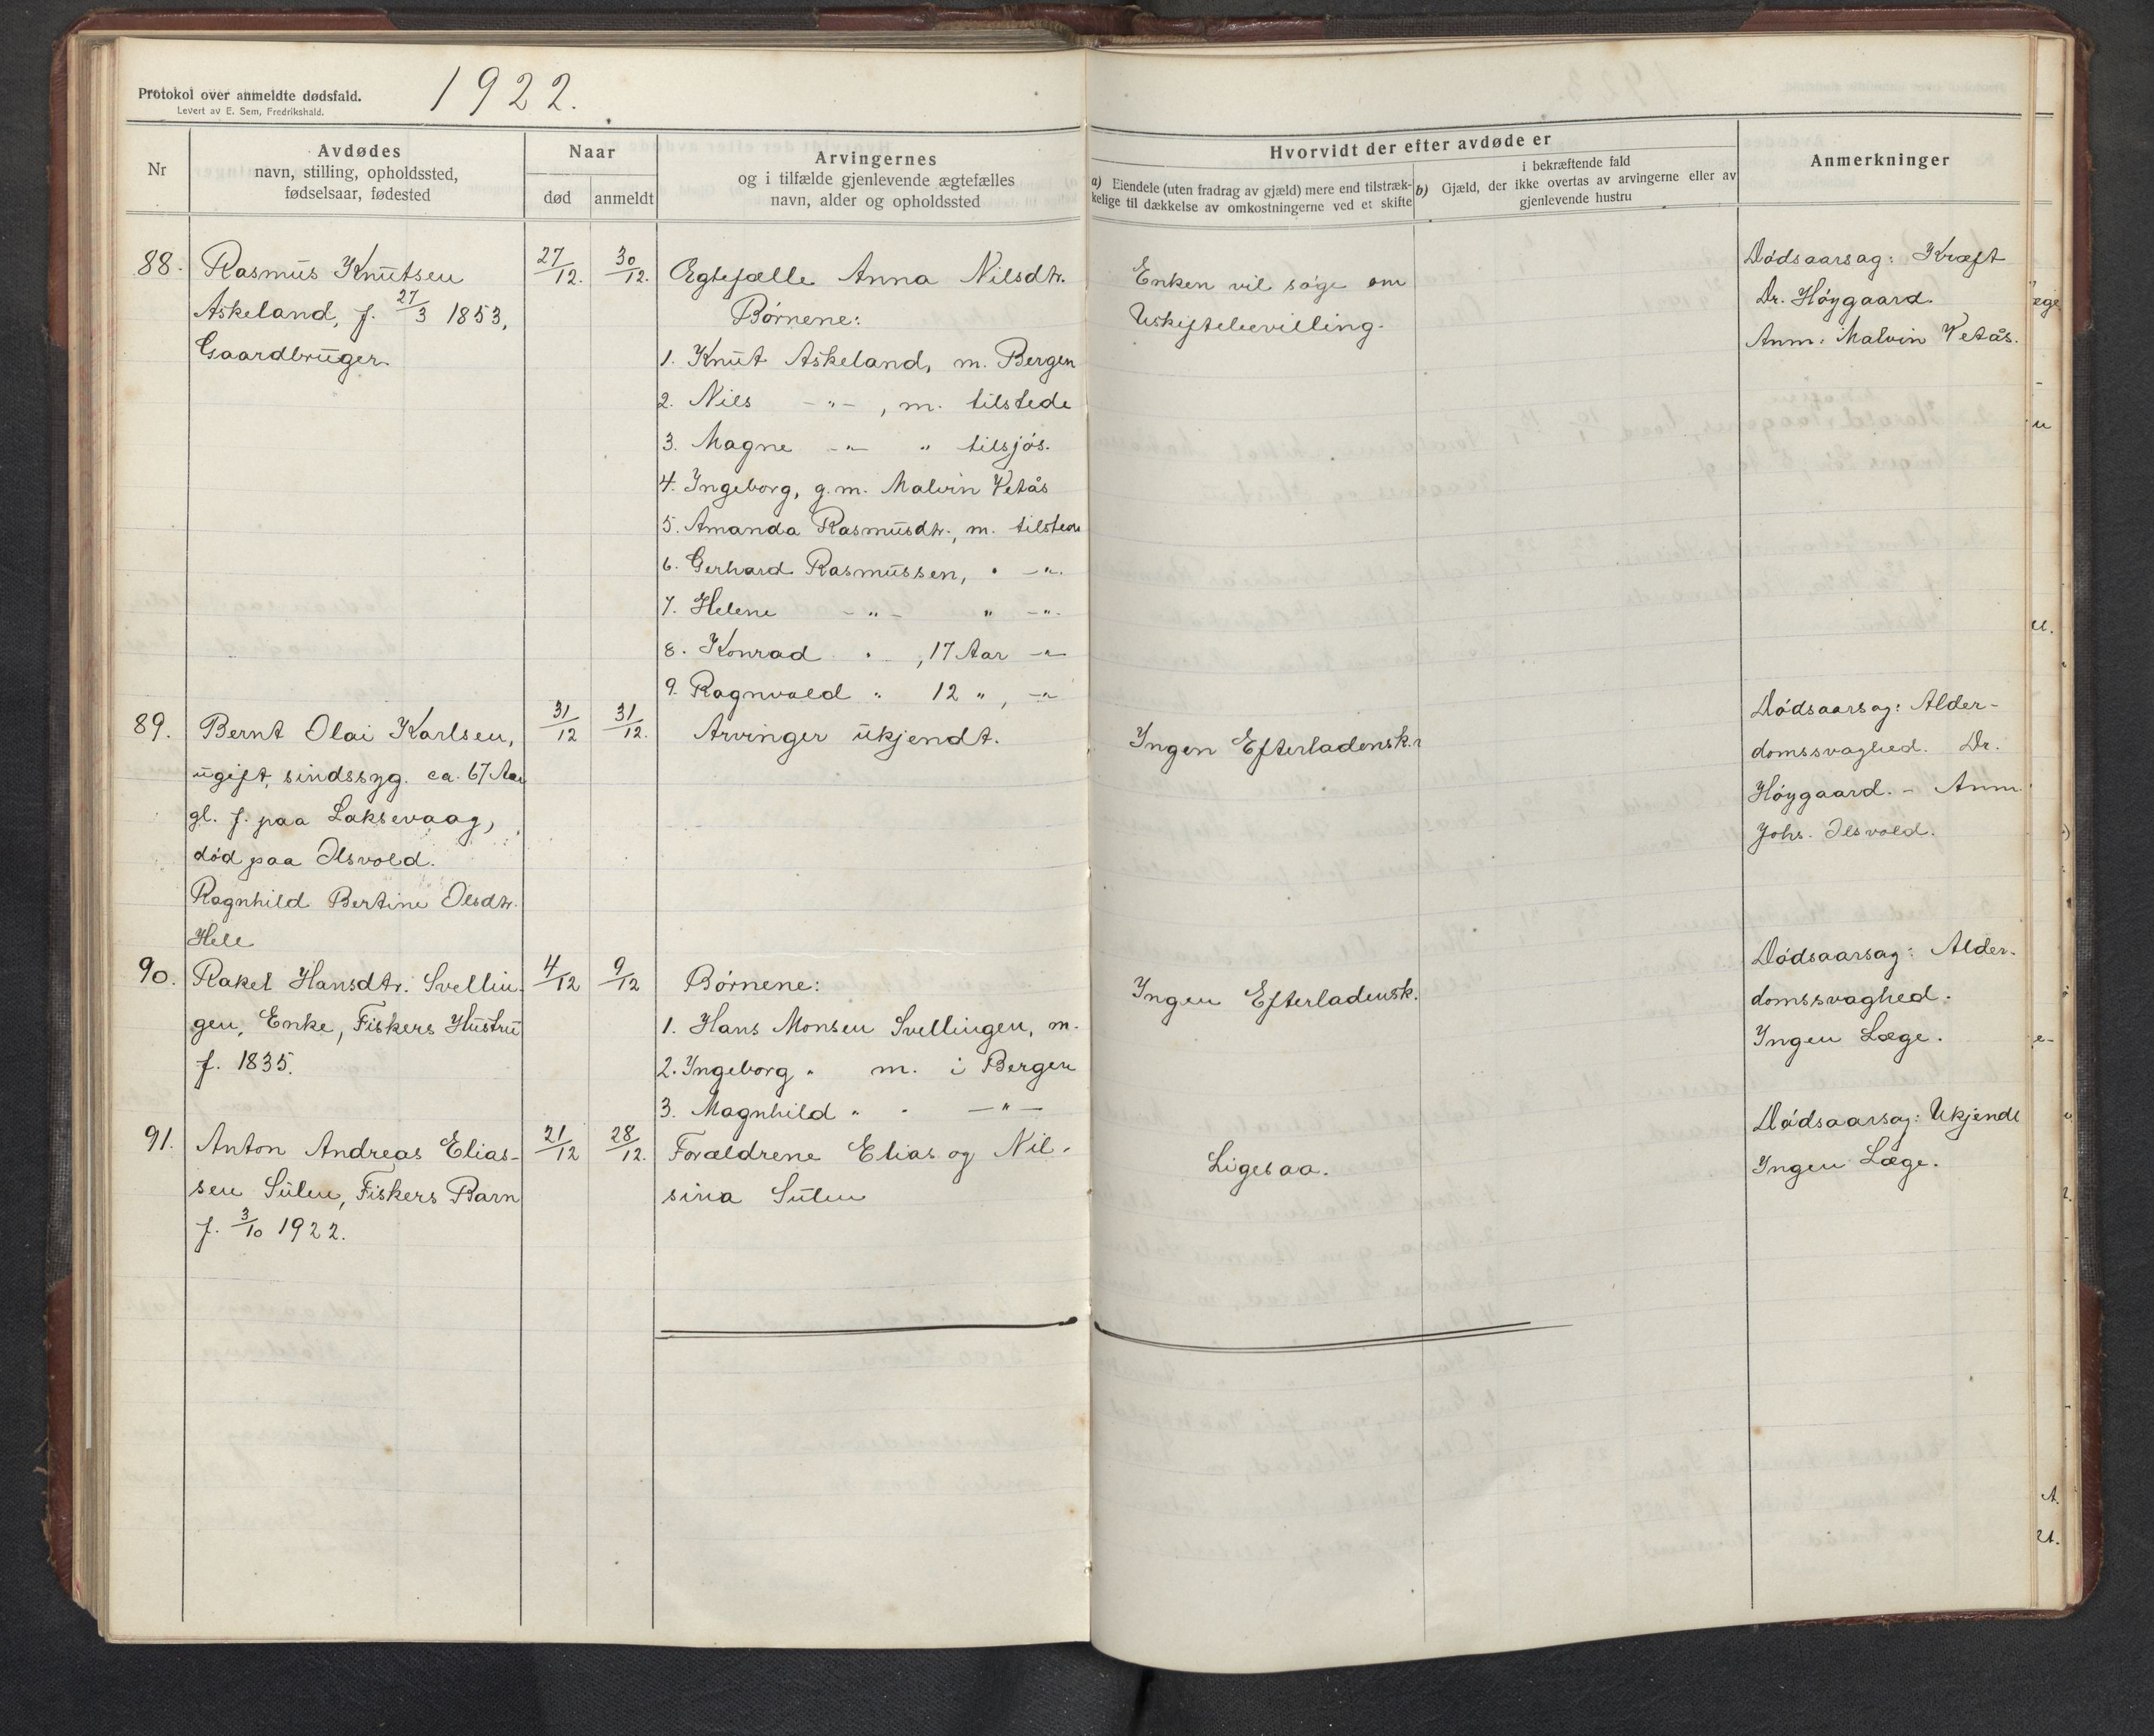 Protokol over anmeldte dødsfald.
Levert av E. Sem, Fredrikshald.
1922.
Nr
Avdødes
navn, stilling, opholdssted,
fødselsaar, fødested
Naar
død
anmeldt
Arvingernes
og i tilfælde gjenlevende ægtefælles
navn, alder og opholdssted
Hvorvidt der efter avdøde er
a) Eiendele (uten fradrag av gjæld) mere end tilstræk-
kelige til dækkelse av omkostningerne ved et skifte
i bekræftende fald
b) Gjæld, der ikke overtas av arvingerne eller av
gjenlevende hustru
Anmerkninger
88.
Rasmus Knutsen
Askeland, f. 27/3 1853,
Gaardbruger.
27/12.
30/12.
Egtefælle Anna Nilsdtr.
Børnene:
1. Knut Askeland, m. Bergen
2. Nils -"-, m. tilstede
3. Magne -"- " tilsjøs.
4. Ingeborg, g.m. Malvin Vetås
5. Amanda Rasmusdtr., m. tilstede
6. Gerhard Rasmussen, " -"-
7. Helene -"- " -"-
8. Konrad " , 17 Aar -"-
9. Ragnvald " 12 ", -"-
Enken vil søge om
Uskiftebevilling.
Dødsaarsag: Kræft
Dr. Høygaard.
Anm: Malvin Vetås.
89.
Bernt Olai Karlsen,
ugift, sindssyg. ca. 67 Aar
gl. f. paa Laksevaag,
død paa Ilsvold.
Ragnhild Bertine Olsdtr.
Hele
31/12
31/12.
Arvinger ukjendt.
Ingen Efterladensk.
Dødsaarsag: Alder-
domssvaghed. Dr.
Høygaard. - Anm:
Johs. Ilsvold.
90.
Rakel Hansdtr. Svellin-
gen, Enke, Fiskers Hustru
f. 1835.
4/12
9/12
Børnene:
1. Hans Monsen Svellingen, m.
2. Ingeborg " m. i Bergen
3. Magnhild " " -"-
Ingen Efterladensk.
Dødsaarsag: Alder-
domssvaghed.
Ingen Læge.
91.
Anton Andreas Elias-
sen Sulen, Fiskers Barn
f. 3/10 1922.
21/12
28/12.
Forældrene Elias og Nil-
sina Sulen
Ligesaa.
Dødsaarsag: Ukjendt
Ingen Læge.